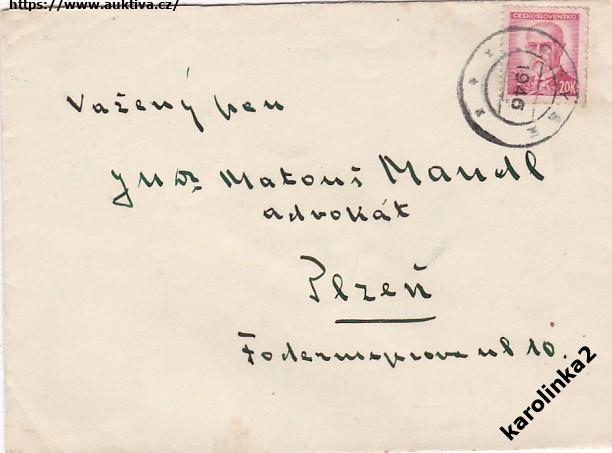 https://www.auktiva.cz/
ČESKOSLOVENSKO
20K
1946
Vážený pan
JUDr Matouš Mandl
advokát
Plzeň
ul 10.
karolinka2